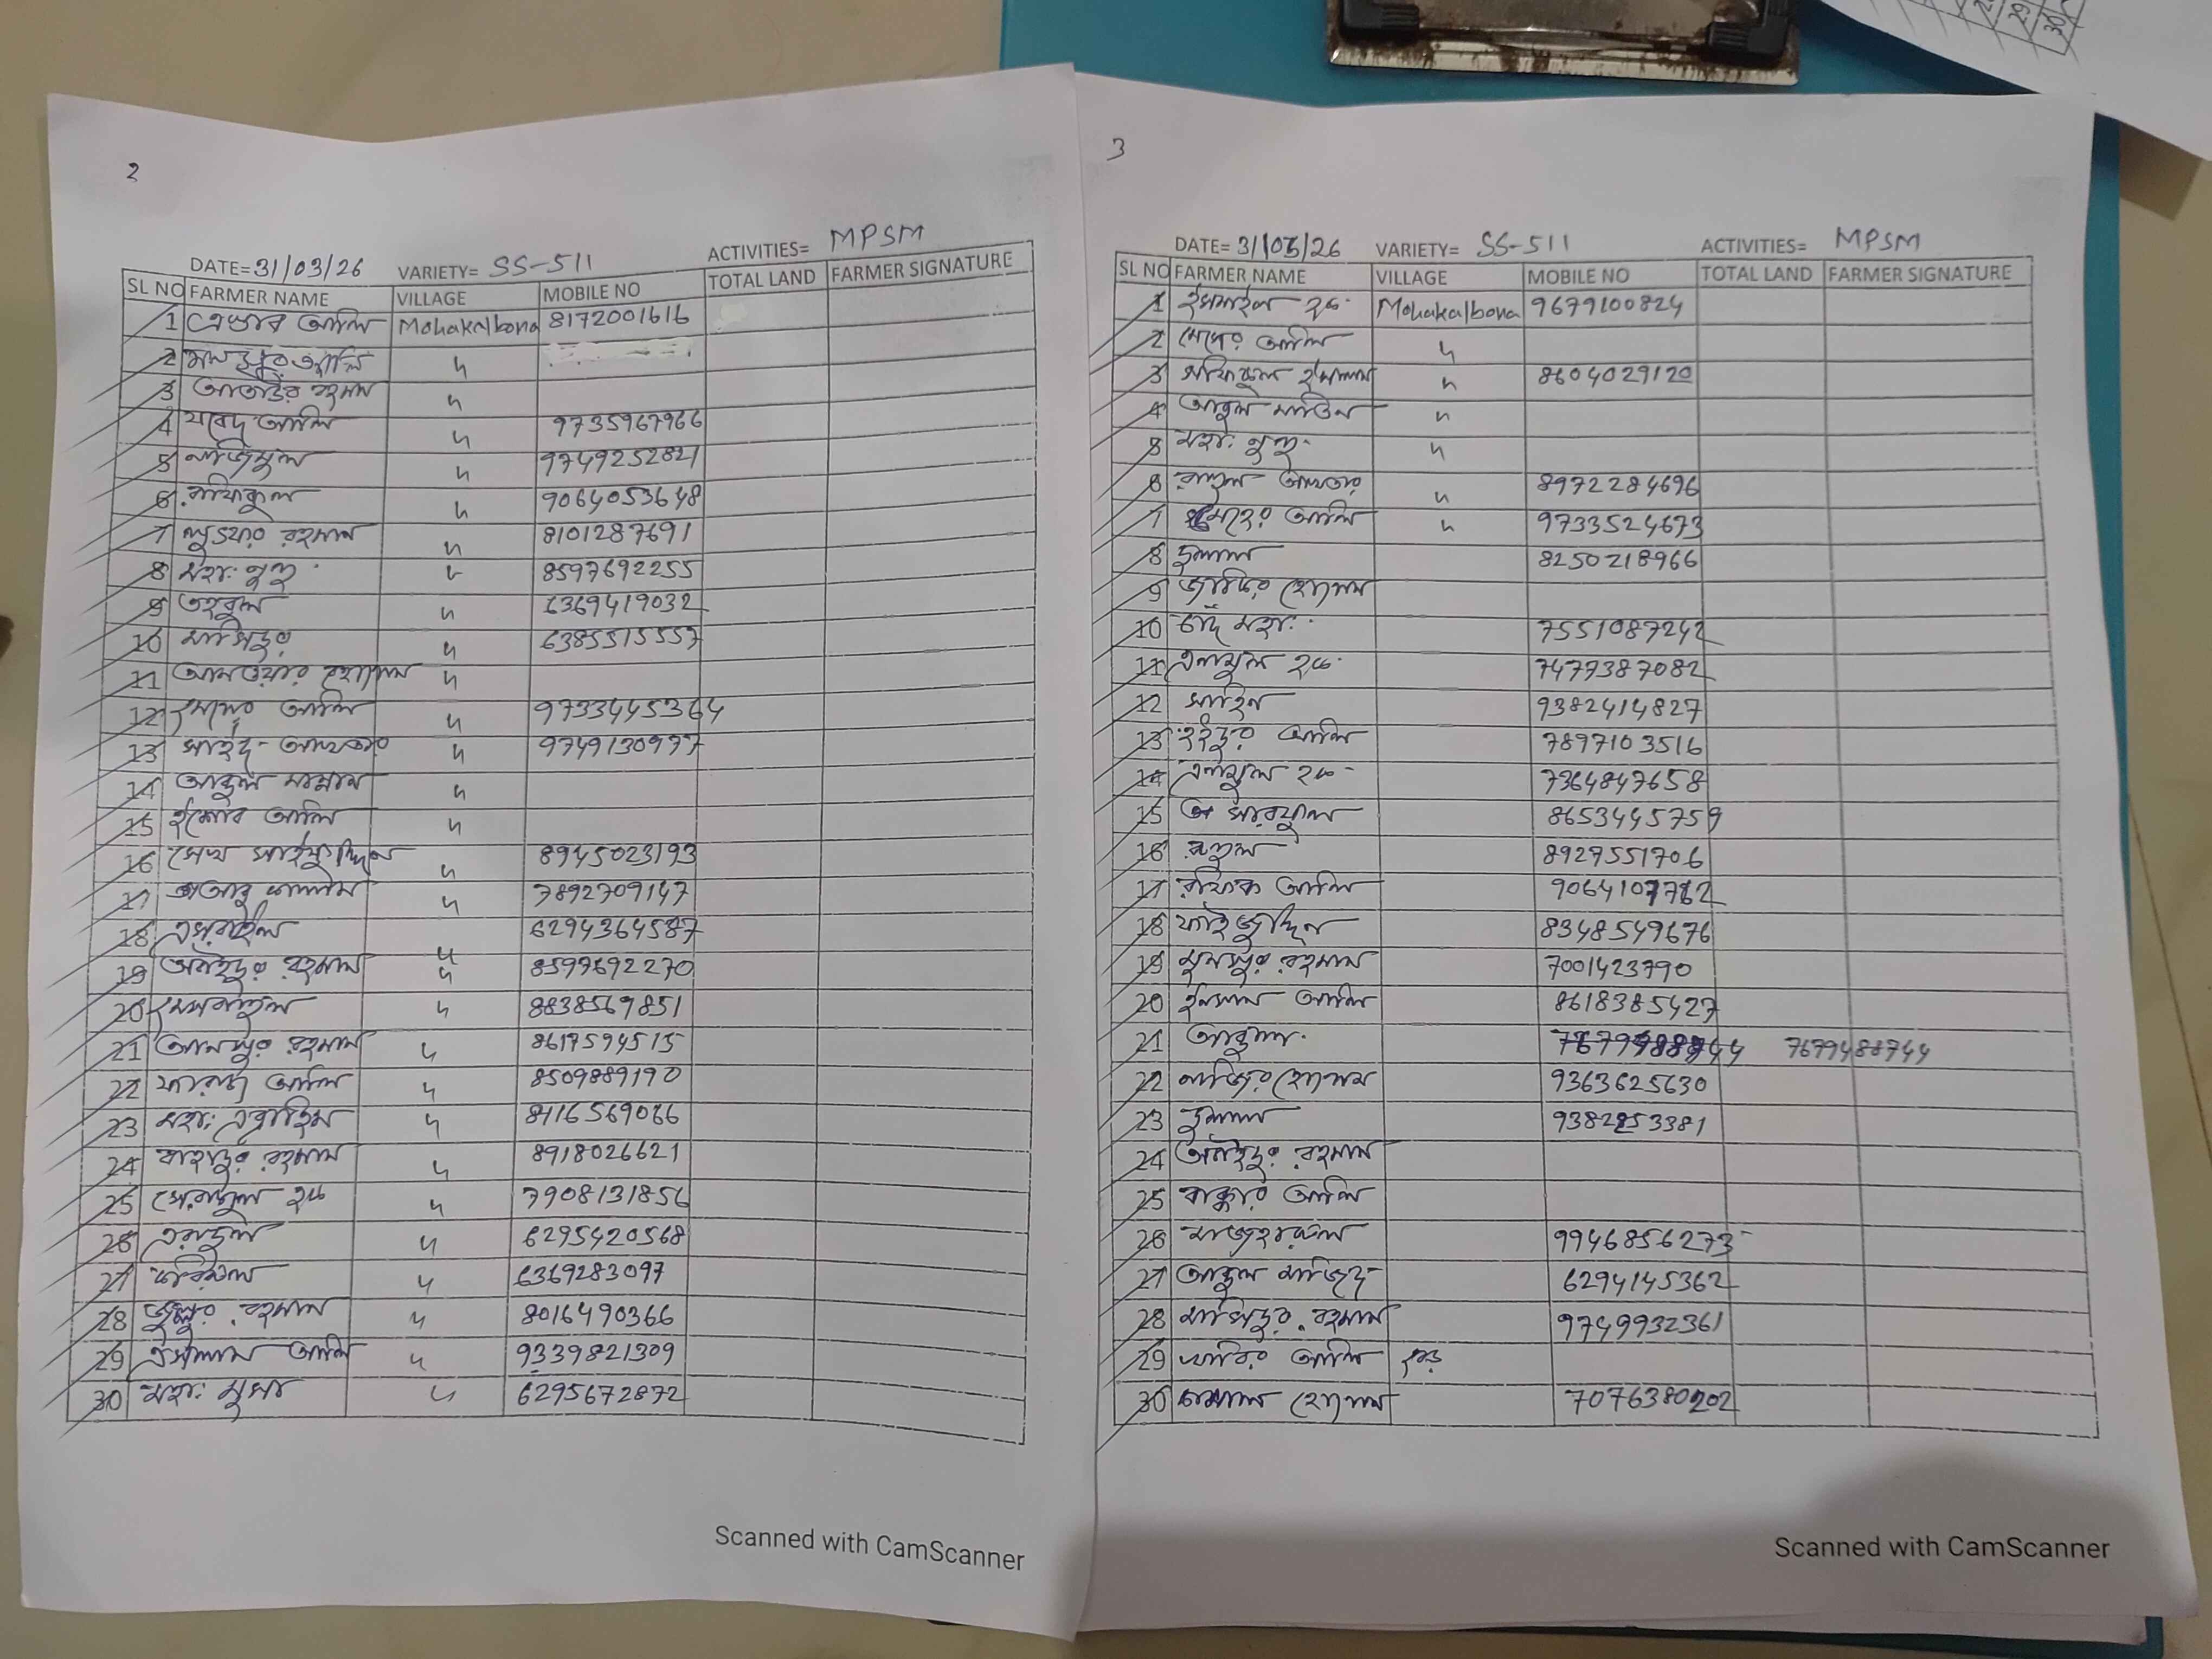 2
DATE=31/03/26 VARIETY= SS-511 ACTIVITIES= MPSM
SL NO FARMER NAME VILLAGE MOBILE NO TOTAL LAND FARMER SIGNATURE
1 আলি Mohakalbona 8172001616
2 মনসুর আলি ''
3 আতাউর রহমান ''
4 যবেদ আলি '' 9735967966
5 নাজিমুল '' 9749252821
6 রফিকুল '' 9064053648
7 লুতফর রহমান '' 8101287691
8 মহা: নুহু '' 8597692255
9 তহবুল '' 6369419032
10 মসিদুর '' 6385515557
11 আনওয়ার হোসেন ''
12 আলি '' 9733445364
13 সাহিদ আখতার '' 9749130997
14 আব্দুল মান্নান ''
15 আলি ''
16 সেখ সাইফুদ্দিন '' 8945023193
17 আবু কালাম '' 7892709147
18 এসরাইল '' 6294364587
19 অবাইদুর রহমান '' 8597692270
20 '' 8838569851
21 আনসুর রহমান '' 8617594515
22 ফারাজ আলি '' 8509889190
23 মহা: এব্রাহিম '' 8116569066
24 বাহাদুর রহমান '' 8918026621
25 সেরাজুল হক '' 7908131856
26 এরাদুল '' 6295420568
27 '' 6369283097
28 রহমান '' 8016490366
29 এসলাম আলি '' 9339821309
30 মহা: মুসা '' 6295672872
Scanned with CamScanner
3
DATE= 31/03/26 VARIETY= SS-511 ACTIVITIES= MPSM
SL NO FARMER NAME VILLAGE MOBILE NO TOTAL LAND FARMER SIGNATURE
1 ইসমাইল হক Mohakalbona 9679100824
2 আলি ''
3 সফিকুল ইসলাম '' 8604029120
4 আব্দুল মতিন ''
5 মহা: নুহু ''
6 আখতার '' 8972284696
7 আলি '' 9733524673
8 দুলাল 8250218966
9 জাকির হোসেন
10 চাঁদ মহা: 7551087242
11 এনামুল হক 7479387082
12 সাহিন 9382414827
13 আলি 7897103516
14 এনামুল হক 7364847658
15 সারফুল 8653445759
16 রুহুল 8927551706
17 রফিক আলি 9064107762
18 ফাইজুদ্দিন 8348549676
19 মুনসুর রহমান 7001423790
20 ইনসান আলি 8618385427
21 আব্দুল 7679488744 7679488744
22 নাজির হোসেন 9363625630
23 দুলাল 9382853381
24 অবাইদুর রহমান
25 বাক্কার আলি
26 মাজহারুল 9946856273
27 আব্দুল মাজিদ 6294145362
28 মসিদুর রহমান 9749932361
29 আলি
30 কামাল হোসেন 7076380202
Scanned with CamScanner
29
30